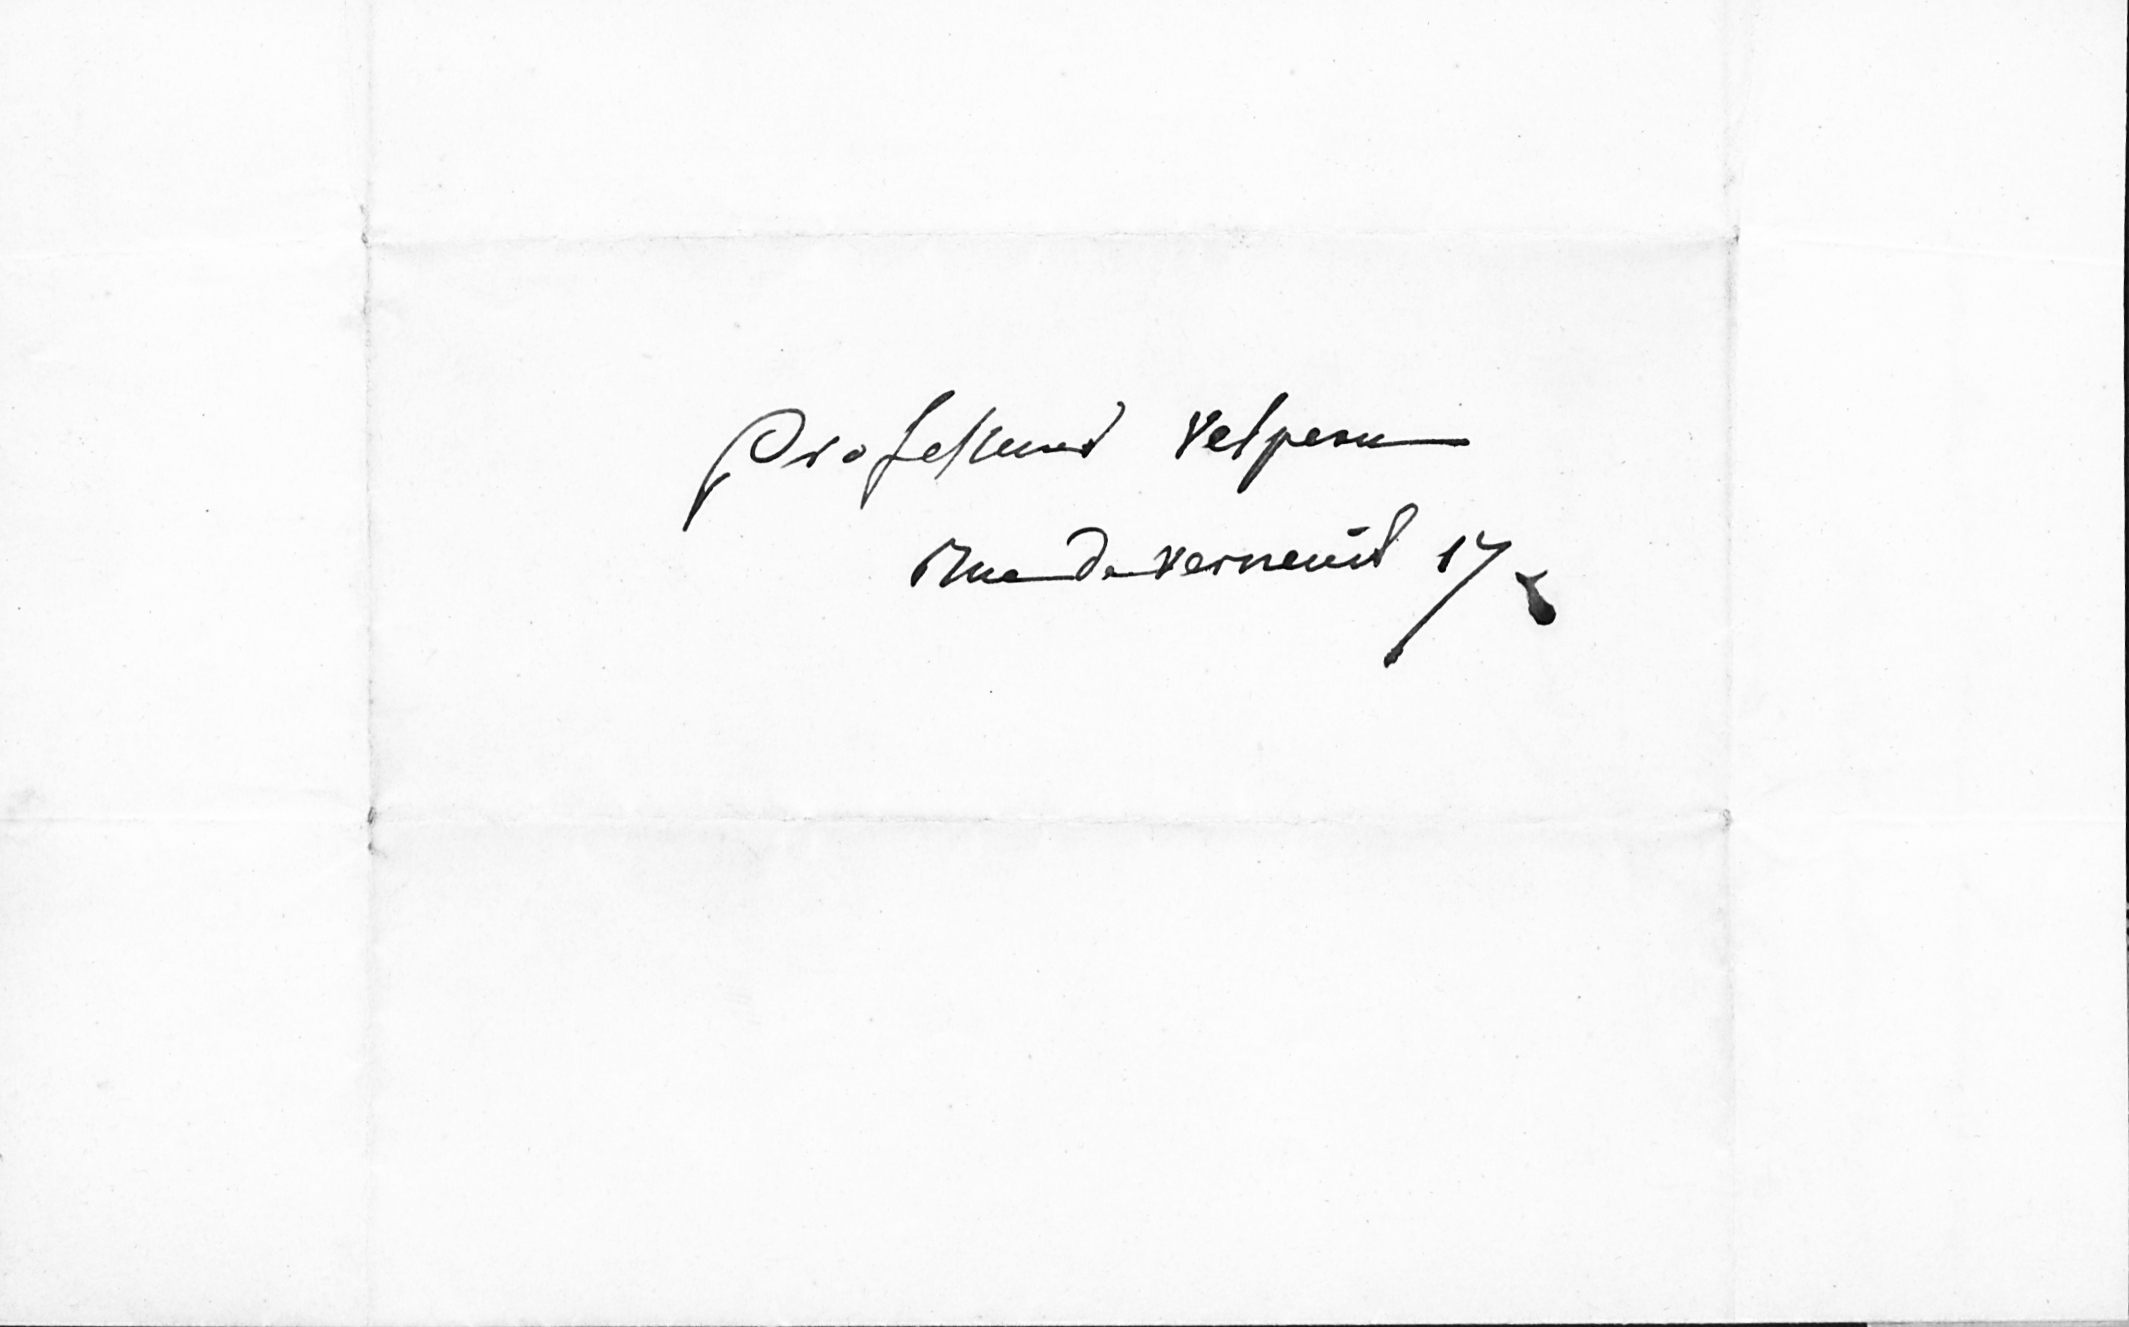 Professeur Velpeau
Rue de Verneuil 17